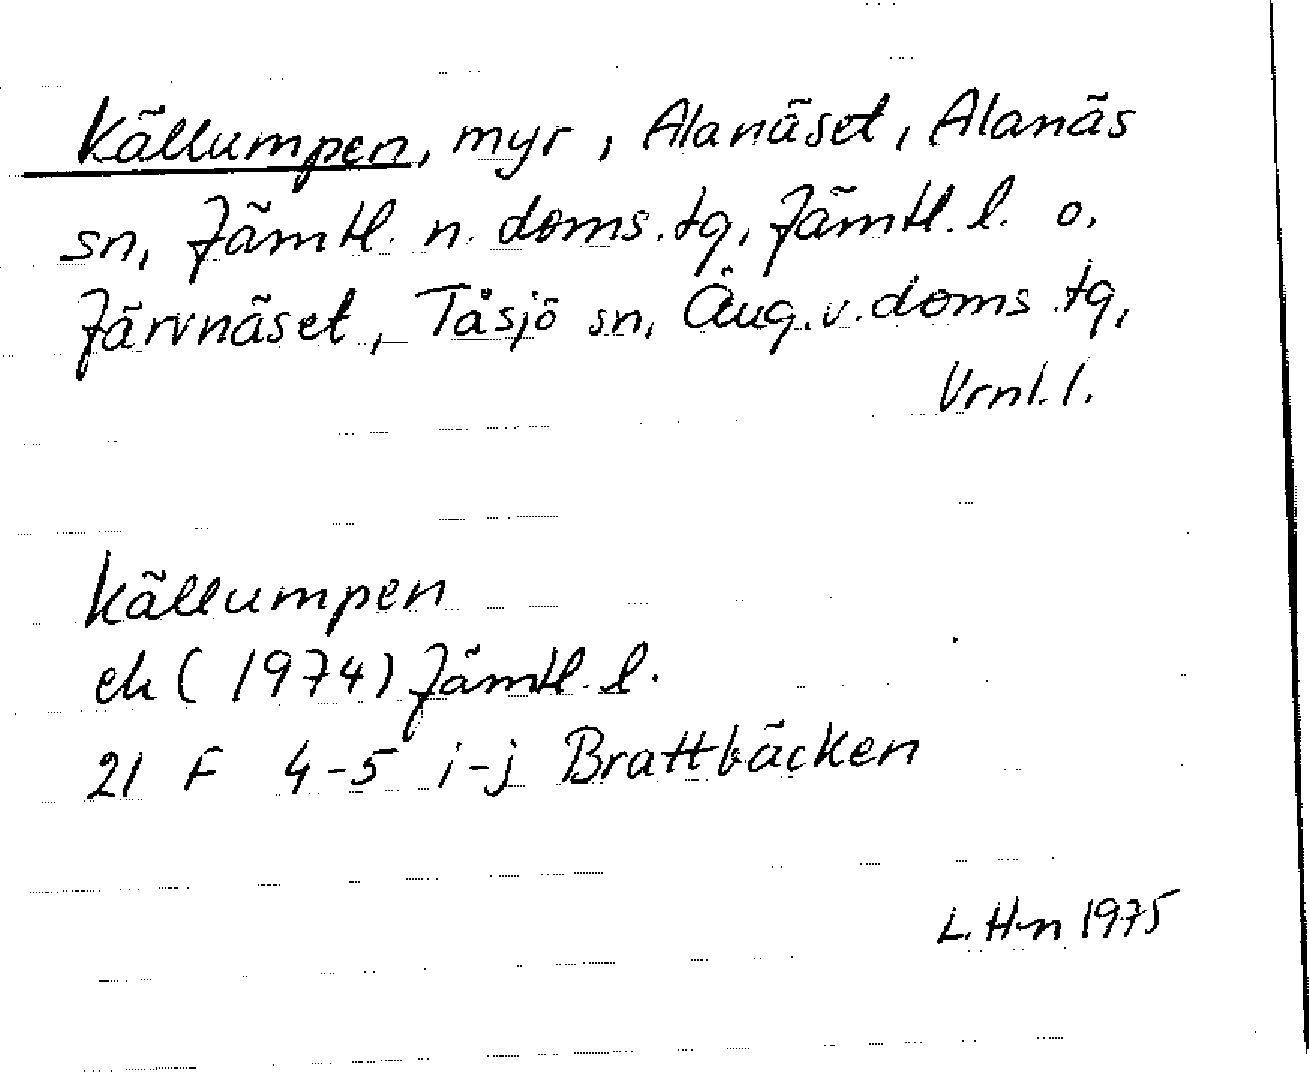 Källumpen, myr, Alanäset, Alanäs
sn, Jämtl. n. doms. tg, Jämtl. l. o.
Järvnäset, Tåsjö sn, Ång. v. doms. tg,
Vrnl. l.
Källumpen
ek (1974) Jämtl. l.
21 F 4-5 i-j Brattbäcken
L. H-n 1975